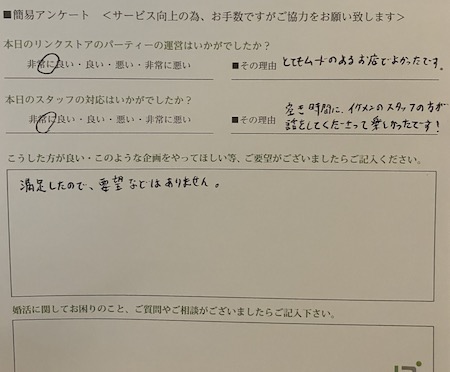 ■簡易アンケート ＜サービス向上の為、お手数ですがご協力をお願い致します＞
本日のリンクストアのパーティーの運営はいかがでしたか？
非常に良い・良い・悪い・非常に悪い ■その理由 とてもムードのあるお店でよかったです。
本日のスタッフの対応はいかがでしたか？
非常に良い・良い・悪い・非常に悪い ■その理由 空き時間に、イケメンのスタッフの方が
話をしてくださって楽しかったです！
こうした方が良い・このような企画をやってほしい等、ご要望がございましたらご記入ください。
満足したので、要望などはありません。
婚活に関してお困りのこと、ご質問やご相談がございましたらご記入下さい。